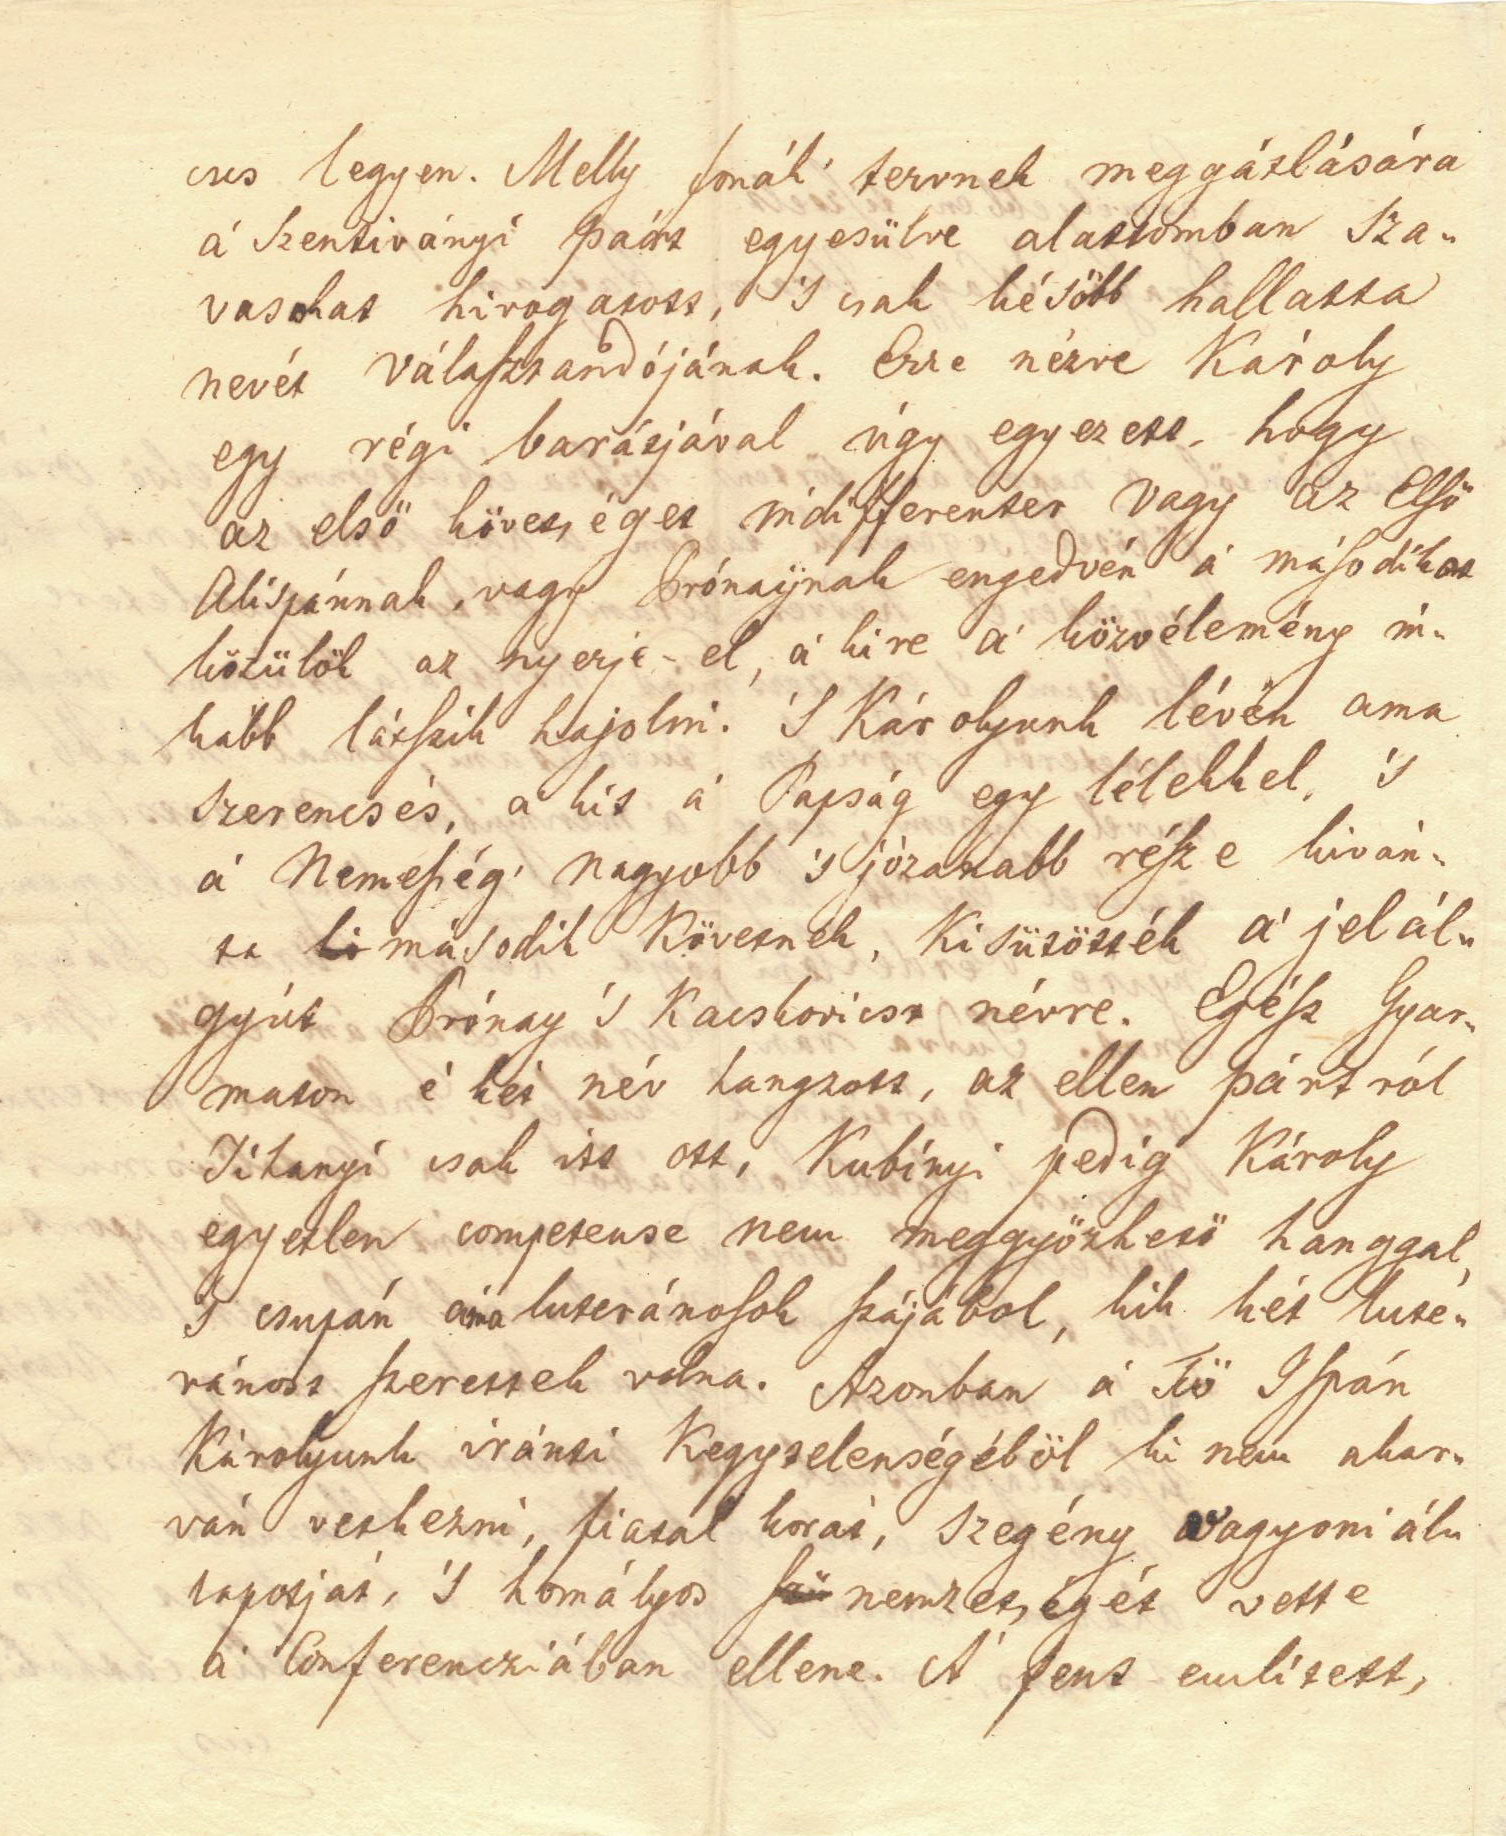 cses legyen. Melly fonák' tervnek meggátlására
a' Szentiványi párt egyesülve alattomban Sza-
vasokat hirogatott, 's csak később hallatta
nevét választandójának. Erre nézve Károly
egy régi barátjával úgy egyezett, hogy
az első követséget indifferenter vagy az Első
Alispánnak, vagy Prónaÿnak engedvén a' másodikat
közülök az nyerje-el, a' kire a' közvélemény in-
kább látszik hajolni. 'S Károlyunk lévén ama
szerencsés, a kit a' Papság egy lélekkel, 's
a' Nemesség' nagyobb 's józanabb része kiván-
ta második Követnek, kisütötték a' jelál-
gyút Prónay 's Kacskovics névre. Egész Gyar-
maton é két név hangzott, az ellen pártról
Tihanyi csak itt ott, Kubínyi pedig Károly
egyetlen competense nem meggyőzhető hanggal,
's csupán ama luteránosok szájából, kik két luté-
ránost szerettek volna. Azonban a' Fő Ispán
Károlyunk iránti kegytelenségéből ki nem akar-
ván vetkezni, fiatal korát, szegény vagyoni ál-
lapotját, 's homályos nemzetségét vette
a' Conferencziában ellene. A' fent emlitett,